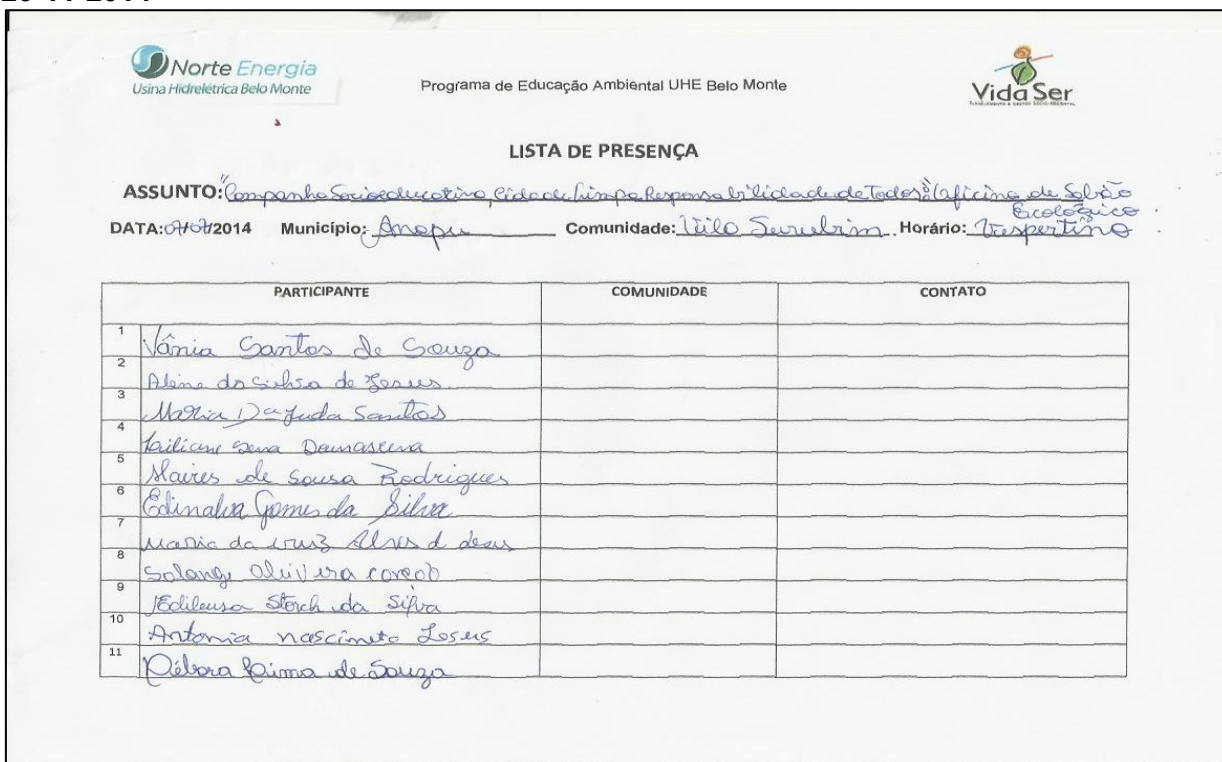 Norte Energia
Usina Hidrelétrica Belo Monte
Programa de Educação Ambiental UHE Belo Monte
Vida Ser
LISTA DE PRESENÇA
ASSUNTO: "Companha Socioeducativa, Cidade Limpa Responsabilidade de Todos" (oficina de Sabão
Ecológico
DATA: 2014 Município: Anapu Comunidade: Vila Surubim Horário: Vespertino
PARTICIPANTE COMUNIDADE CONTATO
1 Vânia Santos de Souza
2 Aline da de Jesus
3 Maria Dajuda Santos
4 Sena Damascena
5 de Sousa Rodrigues
6 Edinalva Gomes da Silva
7 Maria da cruz Alves d Jesus
8 Solange Oliveira
9 Edileusa Storch da Silva
10 Antonia nascimeto Jesus
11 Débora Lima de Souza